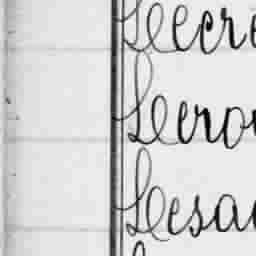 Lecre
Lerou
Lesa